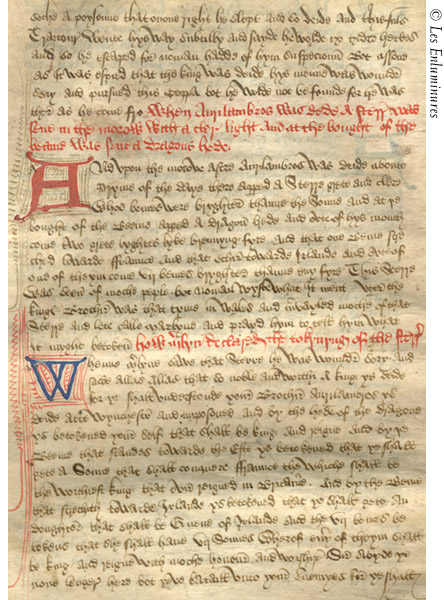 soche a poysone that onone right he slept and so deide and this fals
Traitour wente hys way sodenly and saide he wolde to gedre herbes
and so he scaped for noman hadde of hym suspecioun But assone
as it was espied that the king was deide hys meine was wounder
sory and pursued this but he wolde not be founde for he was
ther as he come fro When Aurilambros was dede a sterr was
sene in the morow with a cler light and at the bought of the
beame was sene a dragons hede
And upon the morow aftre Aurilambros was deide aboute
Pryme of the daye there apperd a Sterre grete and clere
whos bemes were bryghter thanne the Sonne and at ye
bought of the Beme apperd a dragons hede and oute of hys mouth
come two grete lyghtes lyke brennyng fyre and that one Beme
toward ffraunce and that other towarde Irlande and oute of
one of the come vii bemes bryghter thanne eny fyre This sterre
was seen of moche peple but noman wyste what it ment Uter the
kings Brother was that tyme in Wales and moche of that
Sterre and lete calle and prayd hym to telle hym what
it myght betoken how merlyn declared the tokenyng of the sterr
Whenne merlyn sawe that Sterre he was wounder sory and
saide allas allas that so noble and worthi a king ys dede
for ye shall understonde your Brother Aurilambros ys
deide atte Wynchester and enpoysoned and by the hede of the dragone
ys betokened your self that shall be king and reigne and by ye
Beme that standes towarde the Este ys betokened that ye shall
gete a Sonne that shall conquere ffraunce the whiche shall be
the worthiest king that ever reigned in Britane And by the Beme
that towarde Irlande ys betokened that ye shall gete an
doughter that shall be Quene of Irlande and the vii bemes be
tokens that she shall have vii Sonnes wherof eny of them shall
be king and reigne with moche honour and worship And abyde ye
none lenger here but yeve bataill unto your enemyes for ye shall
© Les Enluminures